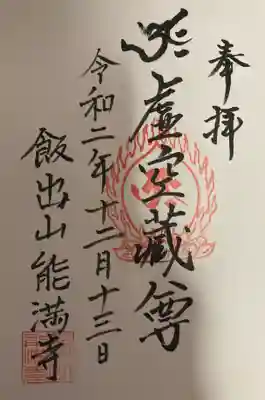 奉拝
虚空蔵尊
令和二年十二月十三日
飯出山能満寺